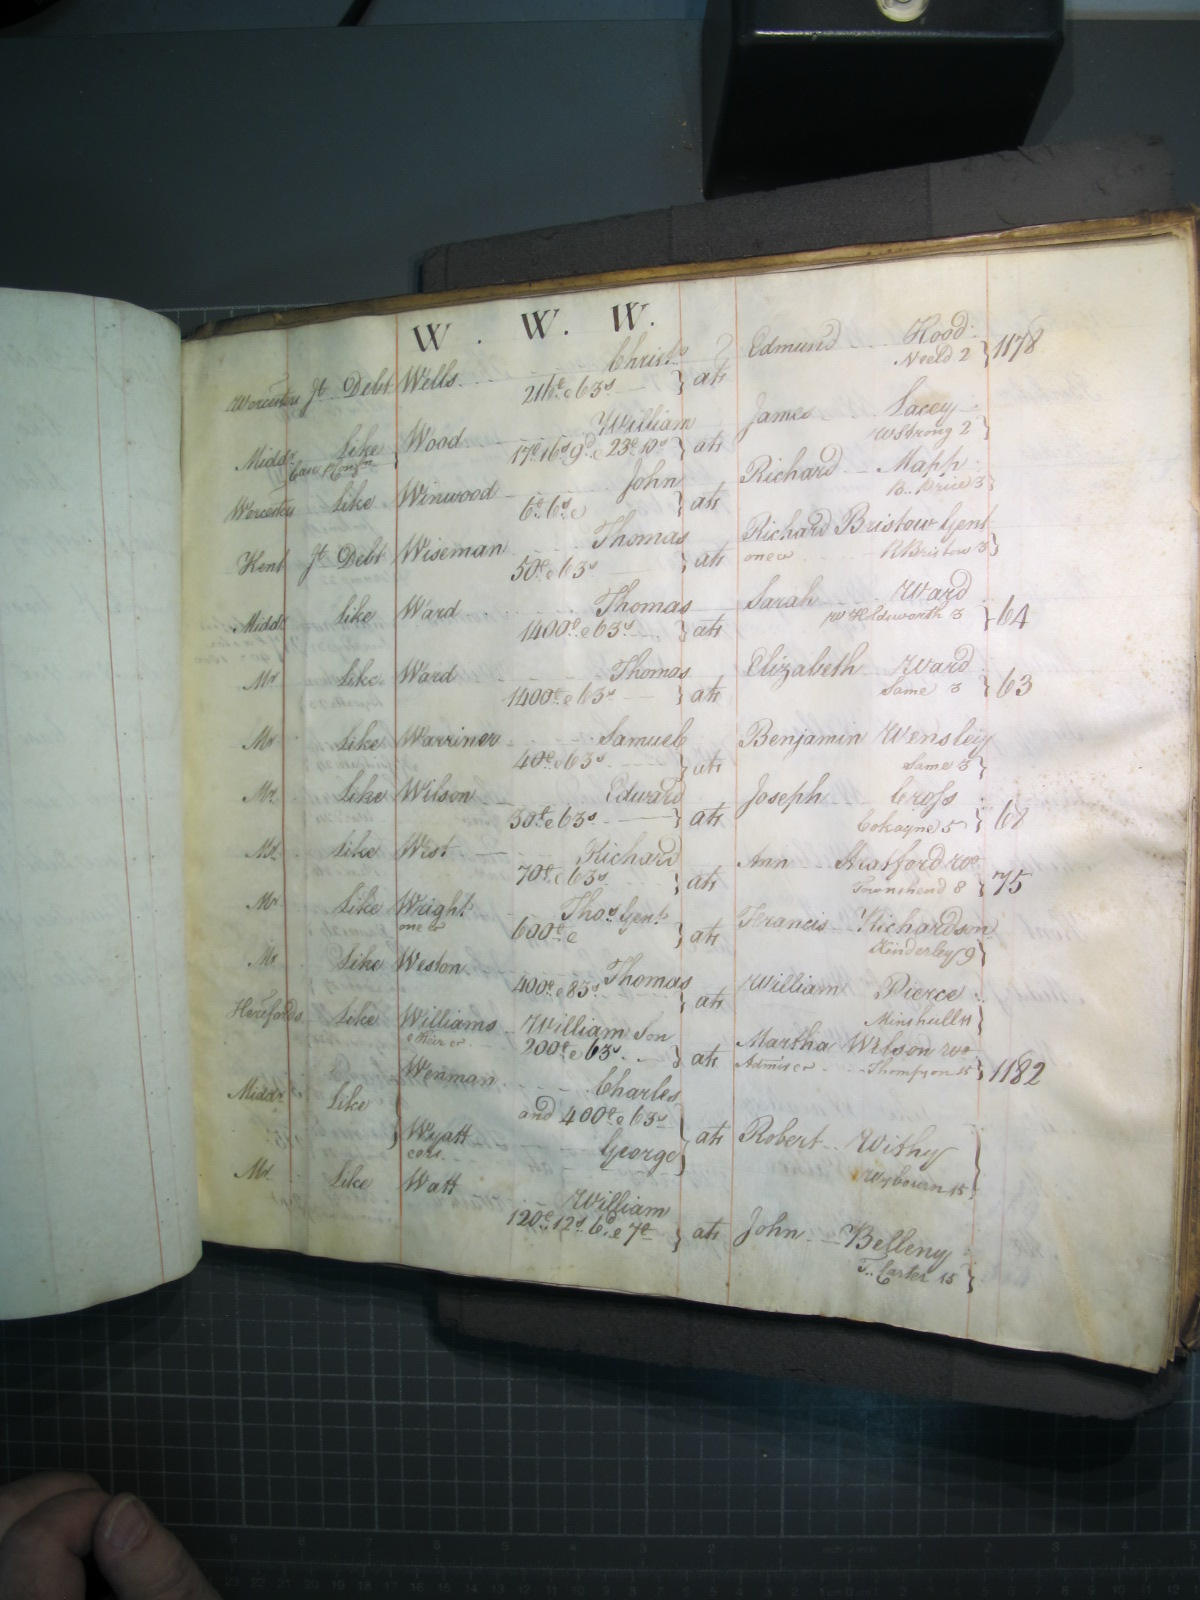 W . W . W.
Worcester Jt Debt Wells Christr 211£ & 63s } ats Edmund Rood
Neeld 2 } 1178
Middx Like Wood William 17£ 16s 9d & 23£ 10s } ats James Lacey
W Strong 2 }
Worcester Like Winwood John 6£ 6s & } ats Richard Mapp
B. Price 3 }
Kent Jt Debt Wiseman Thomas 50£ & 63s } ats Richard Bristow Gent
one &c R Bristow 3 }
Middx Like Ward Thomas 1400£ & 63s } ats Sarah Ward
W Holdsworth 3 } 64
Mx Like Ward Thomas 1400£ & 63s } ats Elizabeth Ward
Same 3 } 63
Mx Like Warriner Samuel 40£ & 63s } ats Benjamin Wensley
Same 3 }
Mx Like Wilson Edward 30£ & 63s } ats Joseph Cross
Cokayne 5 }
Mx Like West Richard 70£ & 63s } ats Ann Stratford wo
Townshend 8 } 75
Mx Like Wright Thos Gent
one &c 600£ & } ats Francis Richardson
Kinderley 9 }
Mx Like Weston Thomas 400£ & 83s } ats William Pierce
Minshull 11 }
Herefords Like Williams William Son
& Heir &c 200£ & 63s } ats Martha Wilson wo
Admix &c Thompson 15 } 1182
Wenman Charles
Middx Like and 400£ & 63s } ats Robert Withy
Wyatt George
exrs Wybourn 15 }
Mx Like Watt William 120£ 12s 6d & 7£ } ats John Belleny
T. Carter 15 }